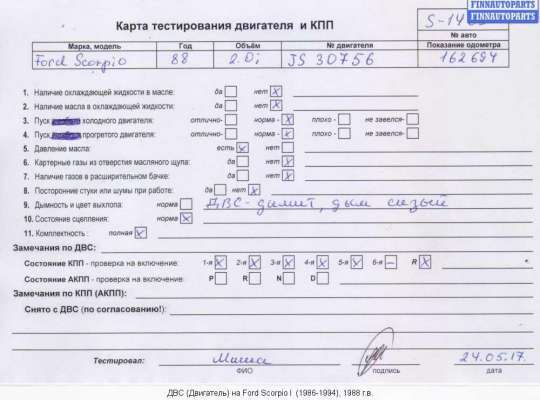 FINNAUTOPARTS
FINNAUTOPARTS
Карта тестирования двигателя и КПП
№ авто
Марка, модель Год Объём № двигателя Показание одометра
Ford Scorpio 88 2.0i JS 30756 162694
1. Наличие охлаждающей жидкости в масле: да нет X
2. Наличие масла в охлаждающей жидкости: да нет X
3. Пуск холодного двигателя: отлично- норма - X плохо - не завелся-
4. Пуск прогретого двигателя: отлично- норма - X плохо - не завелся-
5. Давление масла: есть X нет
6. Картерные газы из отверстия масляного щупа: да нет X
7. Наличие газов в расширительном бачке: да нет X
8. Посторонние стуки или шумы при работе: да нет X
9. Дымность и цвет выхлопа: норма ДВС-дымит, дым сизый
10. Состояние сцепления: норма X
11. Комплектность : полная X
Замечания по ДВС:
Состояние КПП - проверка на включение: 1-я X 2-я X 3-я X 4-я X 5-я X 6-я — R X
Состояние АКПП - проверка на включение: P R N D
Замечания по КПП (АКПП):
Снято с ДВС (по согласованию!):
Тестировал: Миша 24.05.17.
ФИО подпись дата
ДВС (Двигатель) на Ford Scorpio I (1986-1994), 1988 г.в.